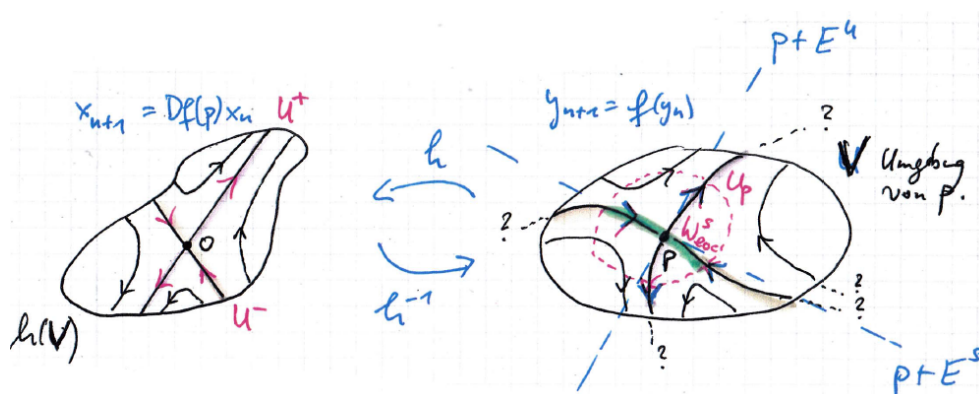 x_{n+1} = Df(p) x_n
U^+
O
U^-
h(V)
h
h^{-1}
y_{n+1} = f(y_n)
p + E^u
?
V Umgebung
von p.
U_p
?
W^s_{loc}
p
?
?
?
p + E^s